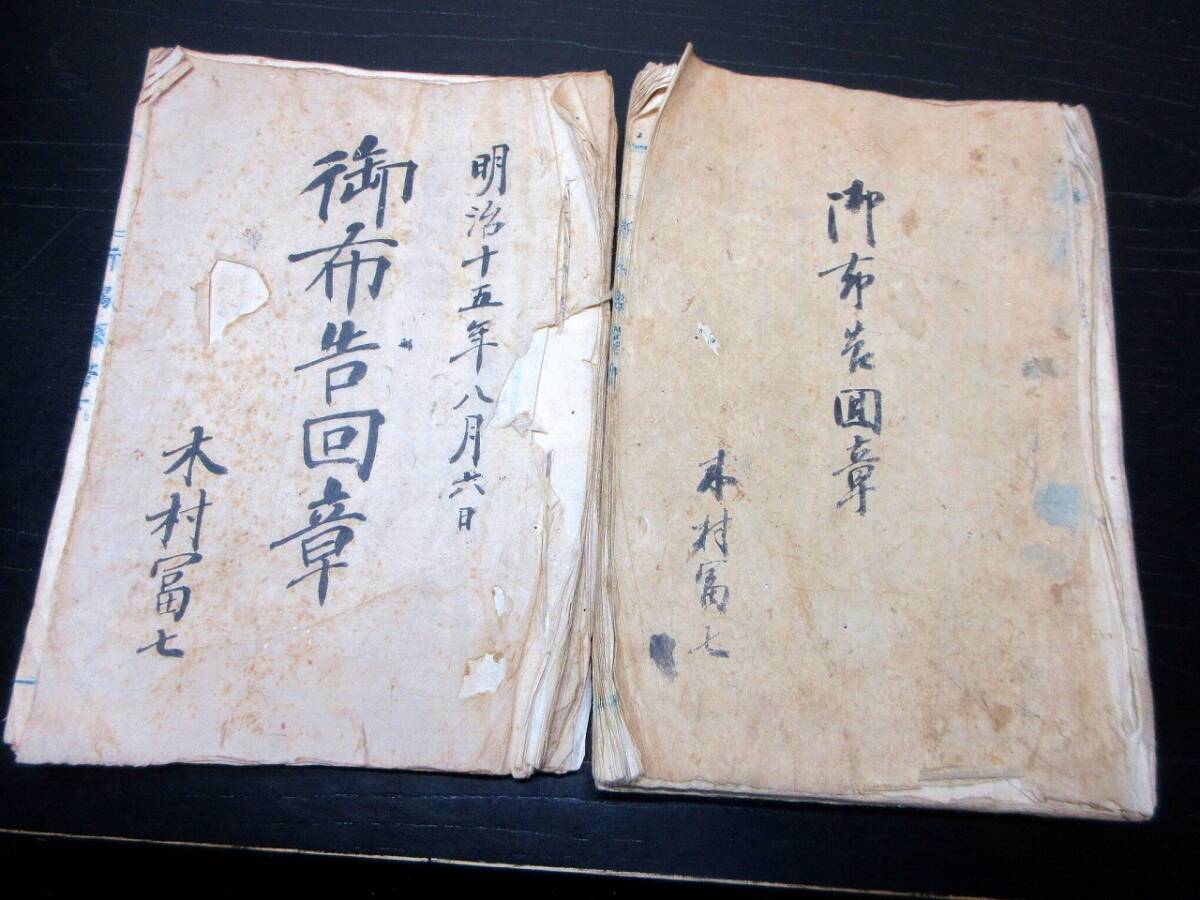 御布告回章
木村冨七
明治十五年八月六日
御布告回章
木村冨七